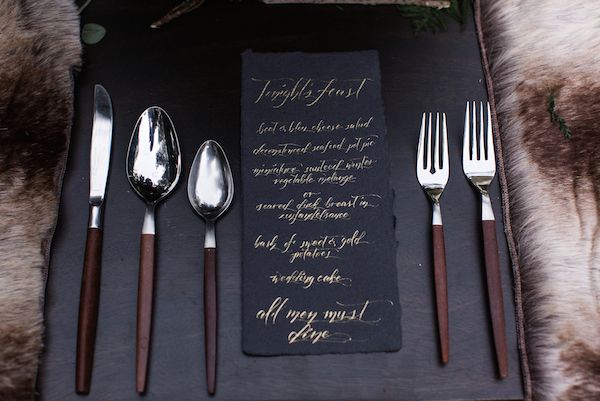 Tonight's feast
beet & bleu cheese salad
deconstructed seafood pot pie
miniature sauteed winter
vegetable melange
or
seared duck breast in
hash of sweet & gold
potatoes
wedding cake
all men must
dine